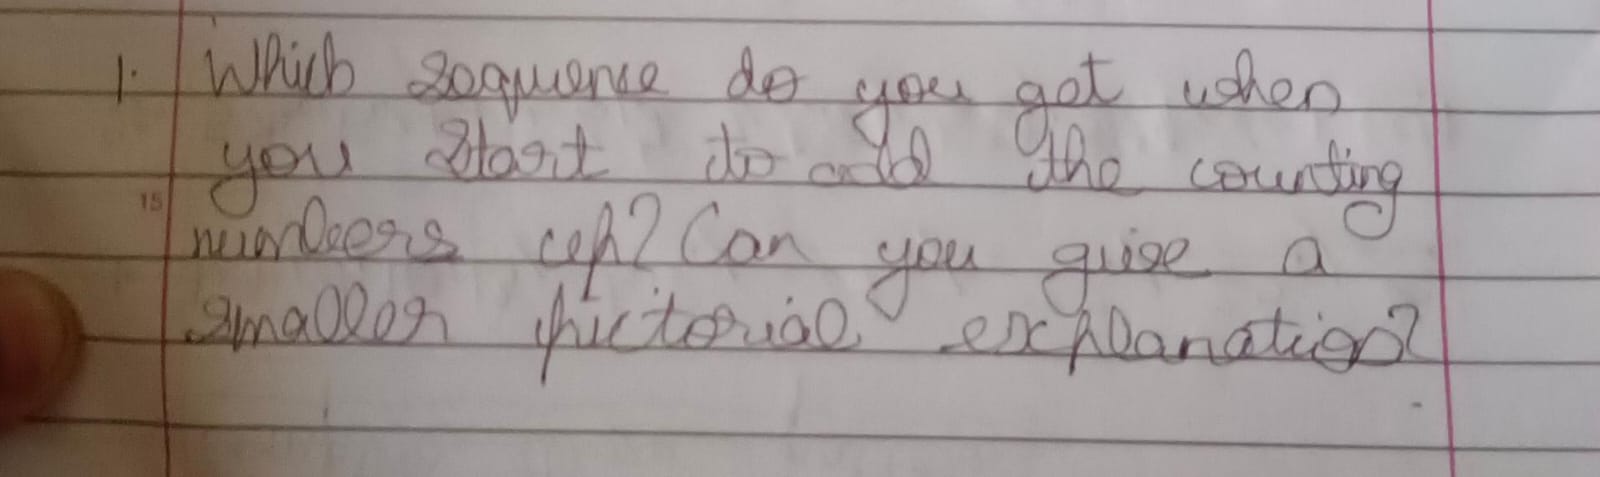 1. Which sequense do you get when
you start to add the counting
numbers up? Can you guise a
smaller pictorial explanation?
15